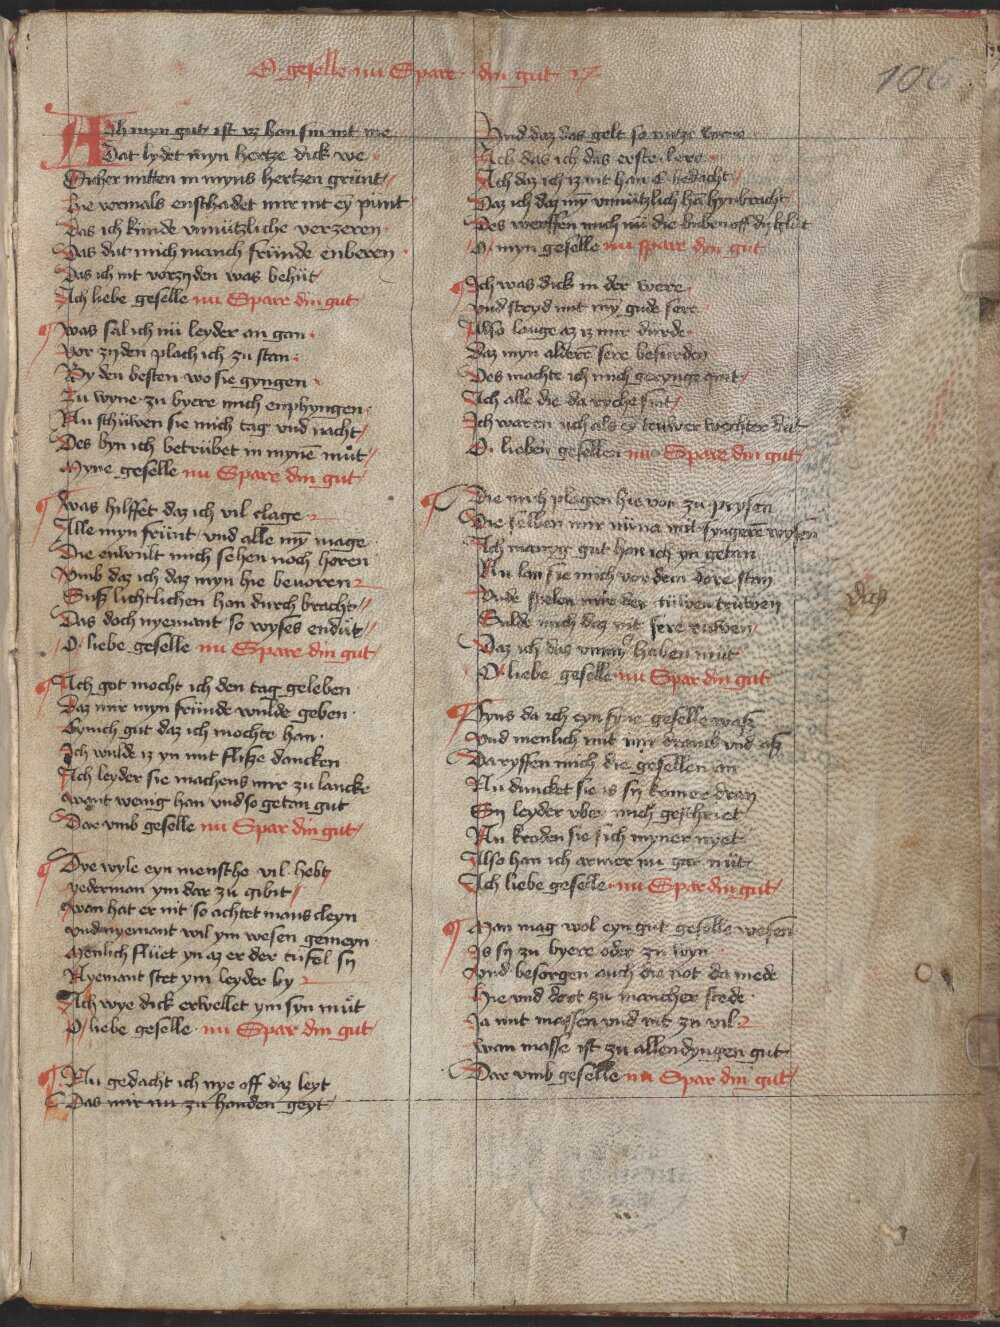 O geselle nu Spare din gut
106
Ach myn gut ist vz han sin nit me
Dat lydet myn hertze dick we
Sicher mitten in myns hertzen grunt
Hie vormals enschadet mir nit ey punt
Das ich kunde vnnutzliche verzeren
Das dut mich manch frunde enberen
Das ich nit vorzyden was behut
Ach liebe geselle nu Spare din gut
Was sal ich nu leyder an gan
Vor zyden plach ich zu stan
By den besten wo sie gyngen
Zu wyne zu byere mich enphyngen
Nu schuwen sie mich tag vnd nacht
Des byn ich betrubet in myne mut
Myne geselle nu Spare din gut
Was hilffet daz ich vil clage
Alle myn frunt vnd alle my mage
Die enwult mich sehen noch horen
Vmb daz ich daz myn hie bevoren
Suß lichtlichen han durch bracht
Das doch nyemant so wyses endut
O liebe geselle nu Spare din gut
Ach got mocht ich den tag geleben
Daz mir myn frunde wulde geben
Synich gut daz ich mochte han
Ich wulde iz yn mit flisze dancken
Ach leyder sie machens mir zu lancke
Want wenig han vnd so getan gut
Dar vmb geselle nu Spar din gut
Dye wyle eyn mensche vil hebt
yederman ym dar zu gibit
Wan hat er nit so achtet mans cleyn
Vnd nyemant wil ym wesen gemeyn
Menlich fluet yn az er der tufel sy
Nyemant stet ym leyder by
Ach wye dick erwellet ym syn mut
O liebe geselle nu Spar din gut
Nu gedacht ich nye off daz leyt
Das mir nu zu handen geyt
Vnd daz das gelt so were
Ach das ich das erste lere
Ach daz ich iz nit han bedacht
Daz ich daz my vnnutzlich han hynbracht
Des werffen mich nu die buben off dy
O myn geselle nu spar din gut
Ich was dick in der were
Vnd streyd mit my gude sere
Also lange az iz mir durde
Daz myn aldere sere besurden
Des machte ich mich gerynge quit
Ach alle die da ryche sint
Ich waren uch als ey truwer wechter dut
O lieben gesellen nu Spare din gut
Die mich plegen hie vor zu prysen
Die selben mir nuna mit fyngere wysen
Ach manig gut han ich yn getan
Nu lan sie mich vor dem dore stan
Vnde spelen mir der
Sulde mich daz nit sere ruwen
Daz ich das haben mut
O liebe geselle nu Spar din gut
Eyns da ich eyn fyne geselle wasz
Vnd menlich mit mir dranck vnd asz
Da ryffen mich die gesellen an
Nu duncket sie is sy komer dran
Sy leyder vber mich geschriet
Nu kroden sie sich myner nyet
Also han ich armer nu gar nut
Ach liebe geselle nu Spar din gut
Man mag wol eyn gut geselle wesen
Is sy zu byere oder zu wyn
Vnd besorgen auch die not da mede
Hie vnd dort zu mancher stede
Ja mit massen vnd nit zu vil
Wan masse ist zu allendyngen gut
Dar vmb geselle nu Spar din gut